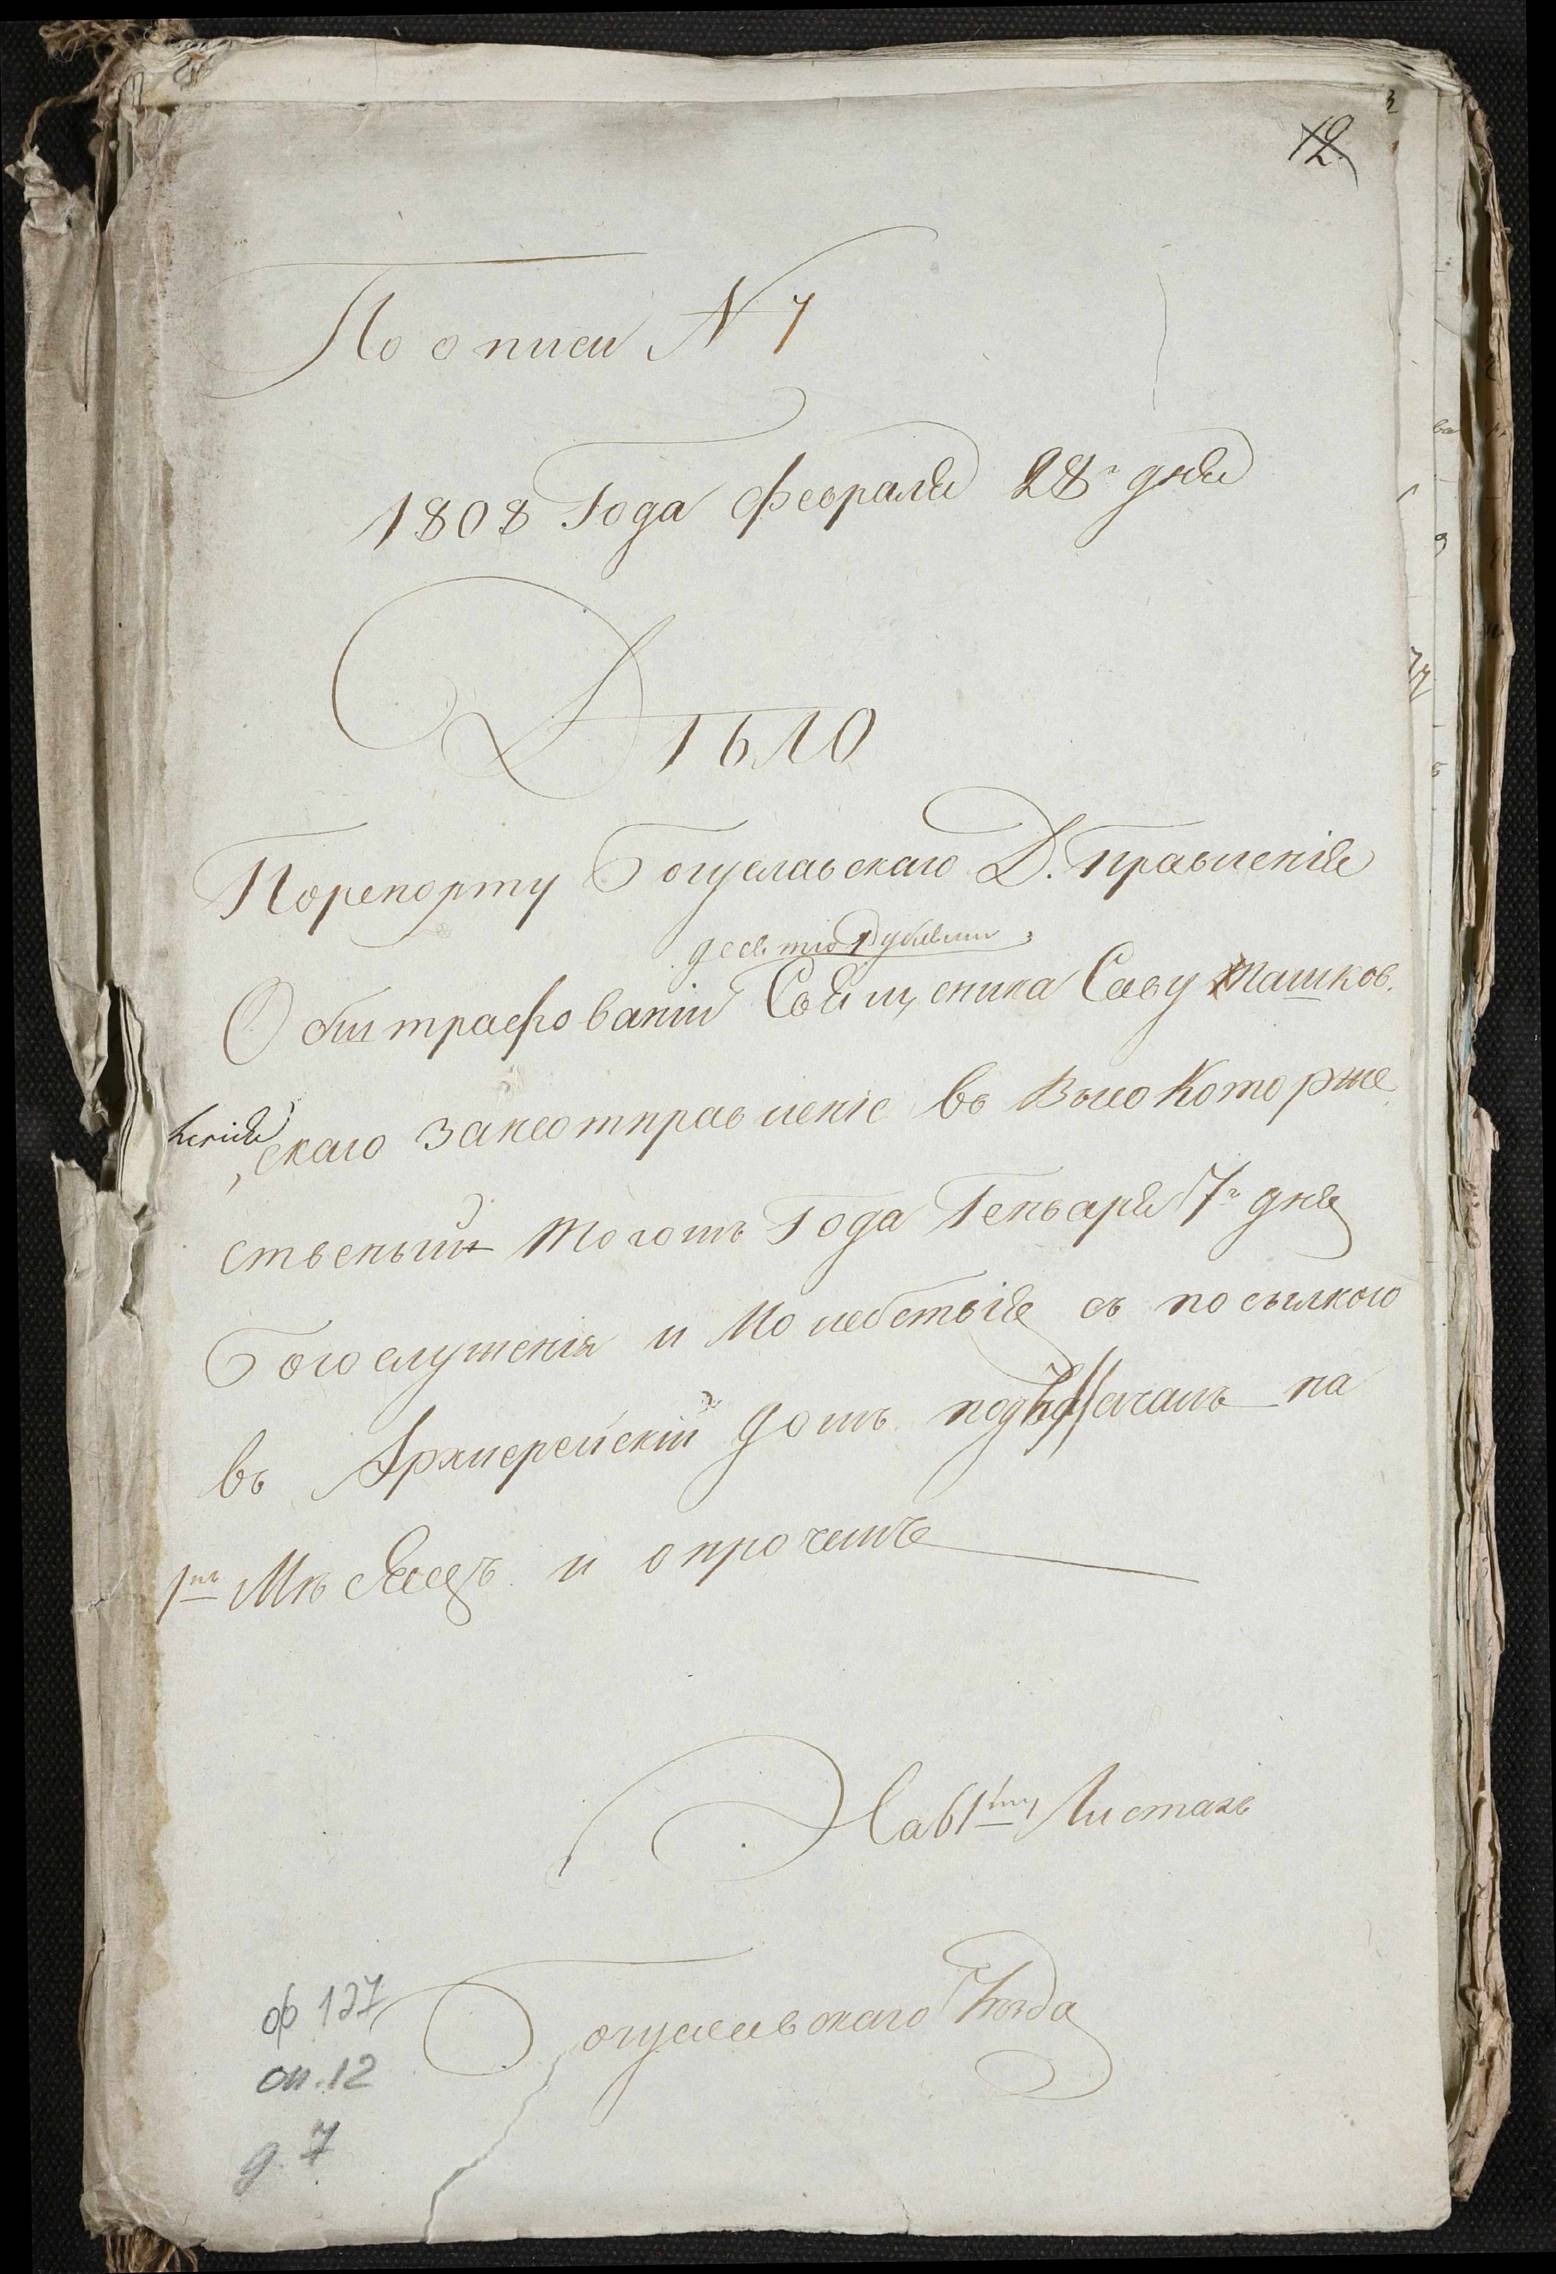 12
По описи N 7
1808 Года февраля 28го дня
Дѣло
Порепорту Богуславскаго Д. Правленія
десятю Рублями
О обштрафованіи Священика Савy Ташков
скаго занеотправленіе въ Высокоторже
ственый тогожъ Года Генваря 7го дня
Богослуженія и Молебствія съ посылкою
въ Архиерейский домъ подъ началъ на
1нъ Мѣсяцъ и опрочемъ
Листахъ
Богуславскаго Уѣзда
ф 127
оп. 12
д. 7